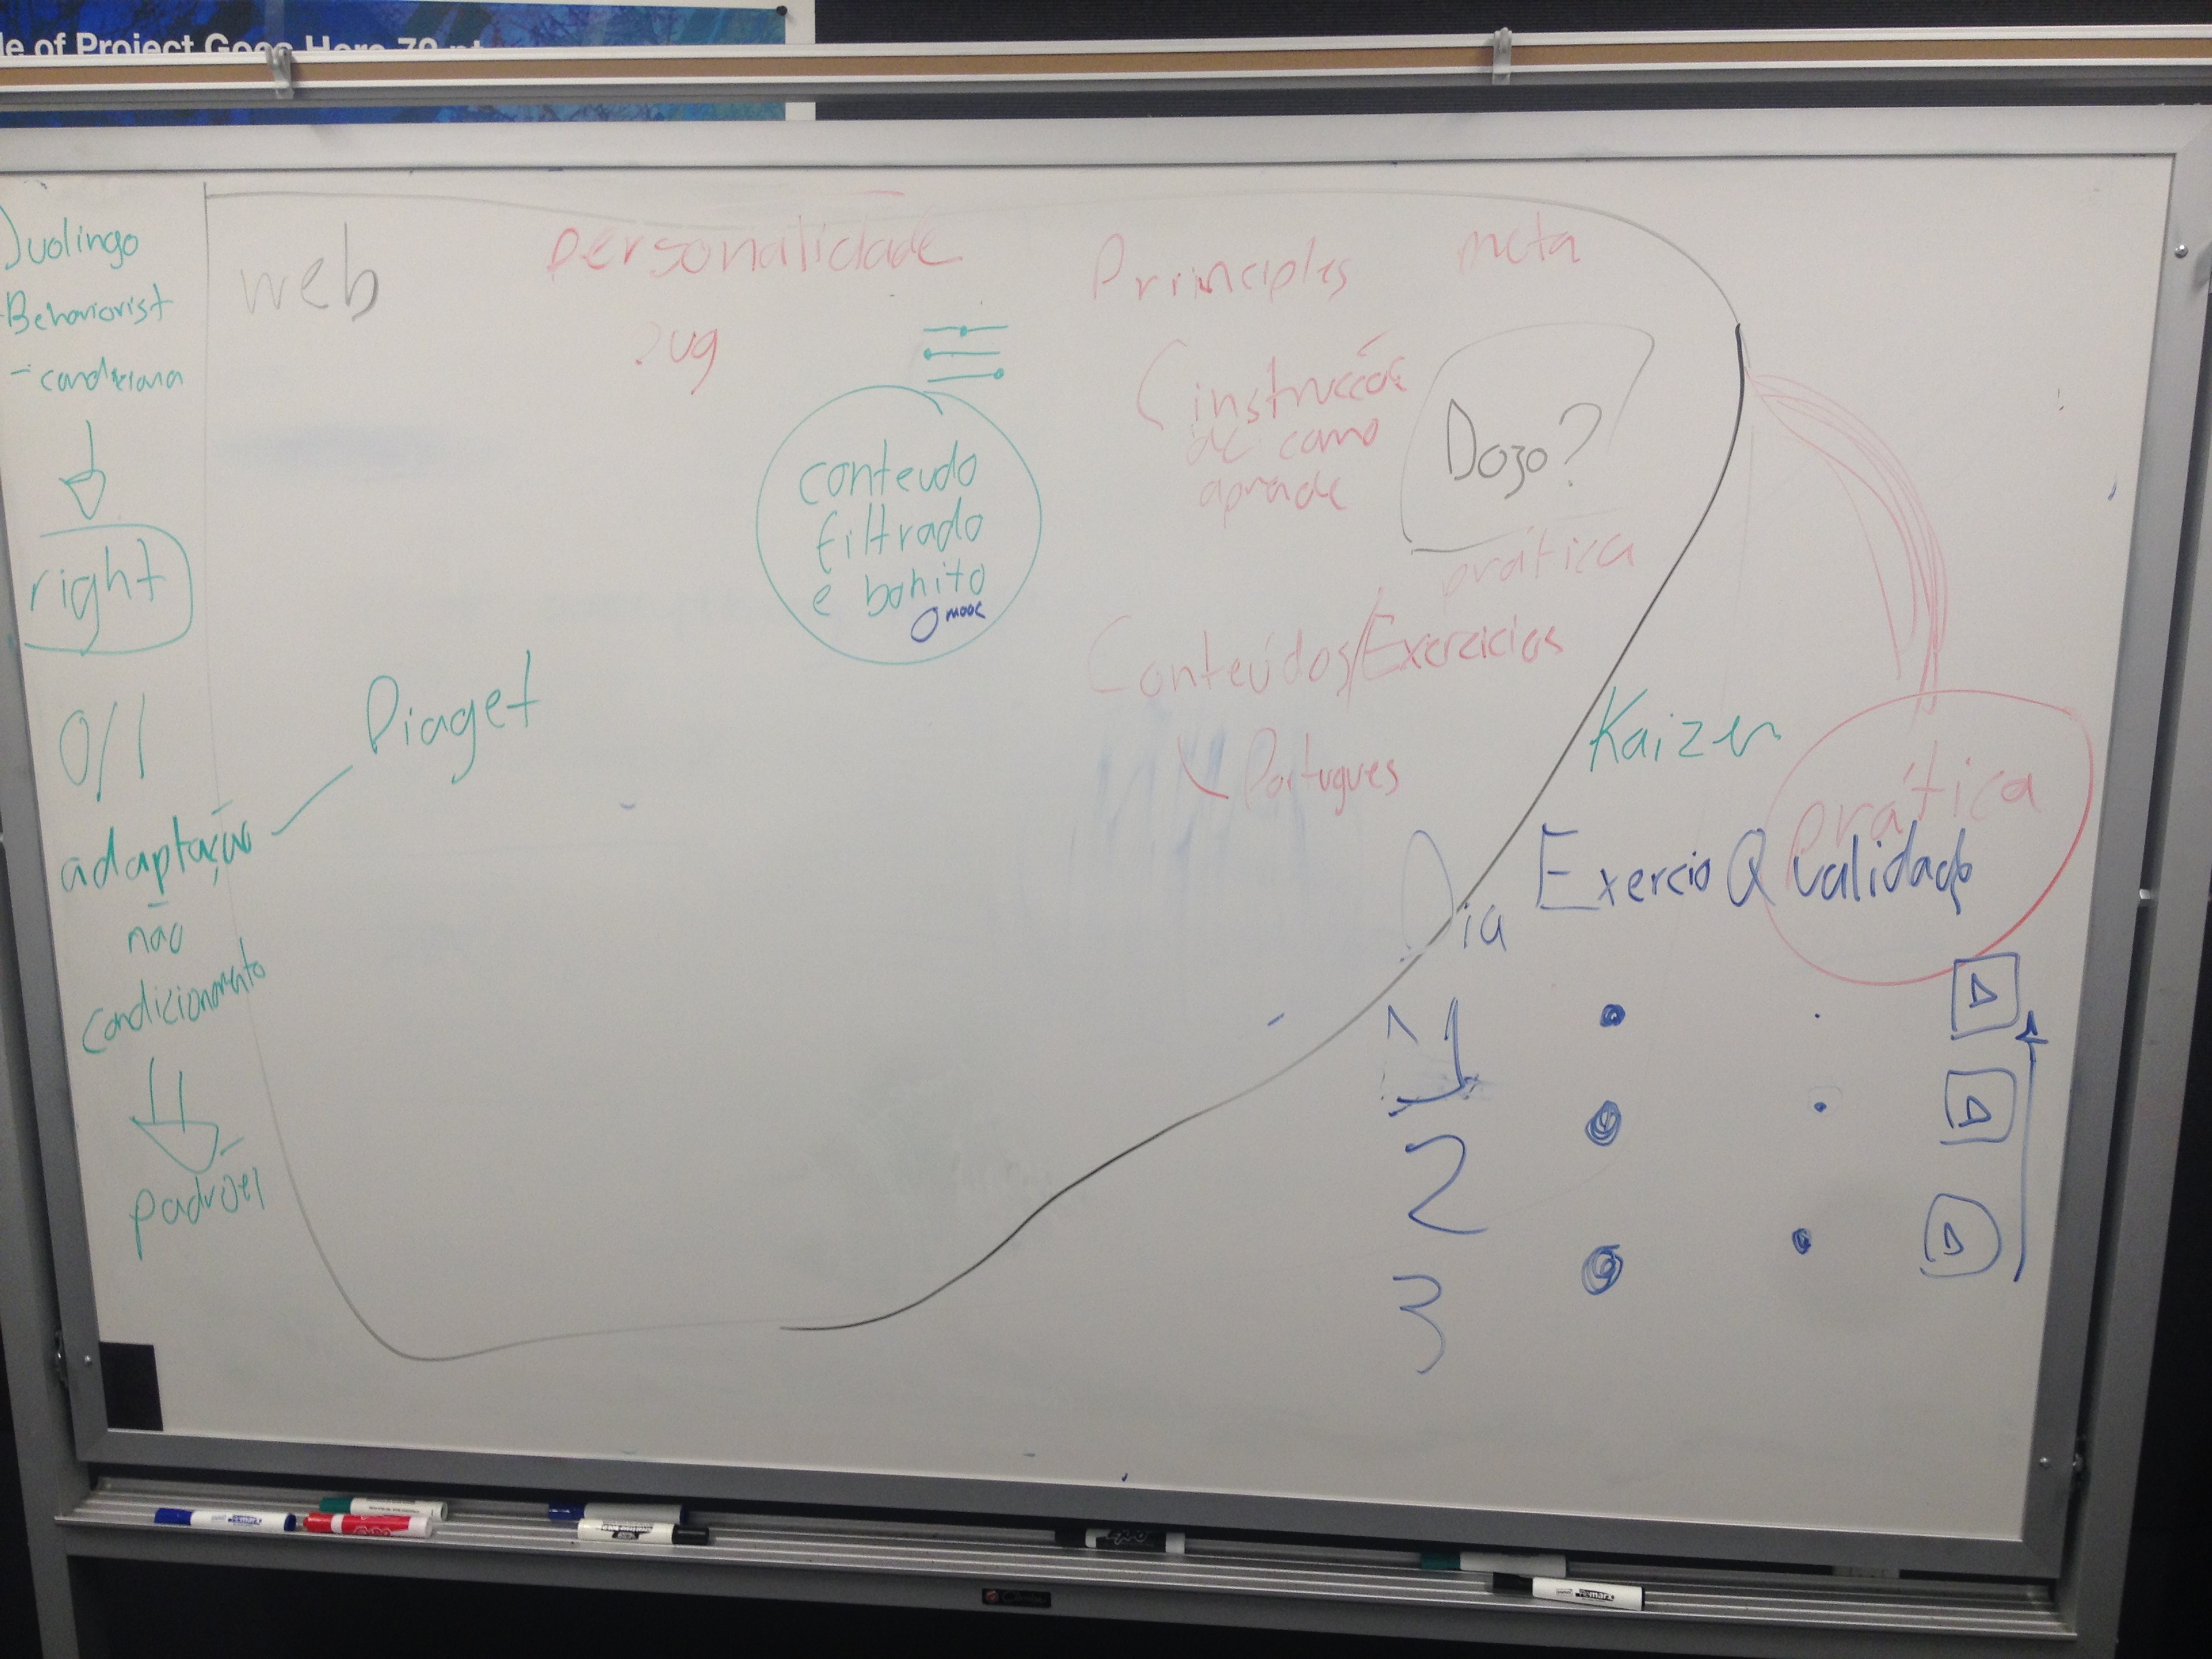 le of Project Goes Here 70 pt
Duolingo
-Behaviorist
- condiciona
right
0/1
adaptação
não
condicionamento
padrões
web
Piaget
personalidade
conteudo
filtrado
e bonito
mooc
Principles
meta
instrucció
de como
aprade
Dojo?
prática
Conteúdos/Exercicios
Portugues
Kaizen
prática
Dia Exercio Q validado
1
2
3